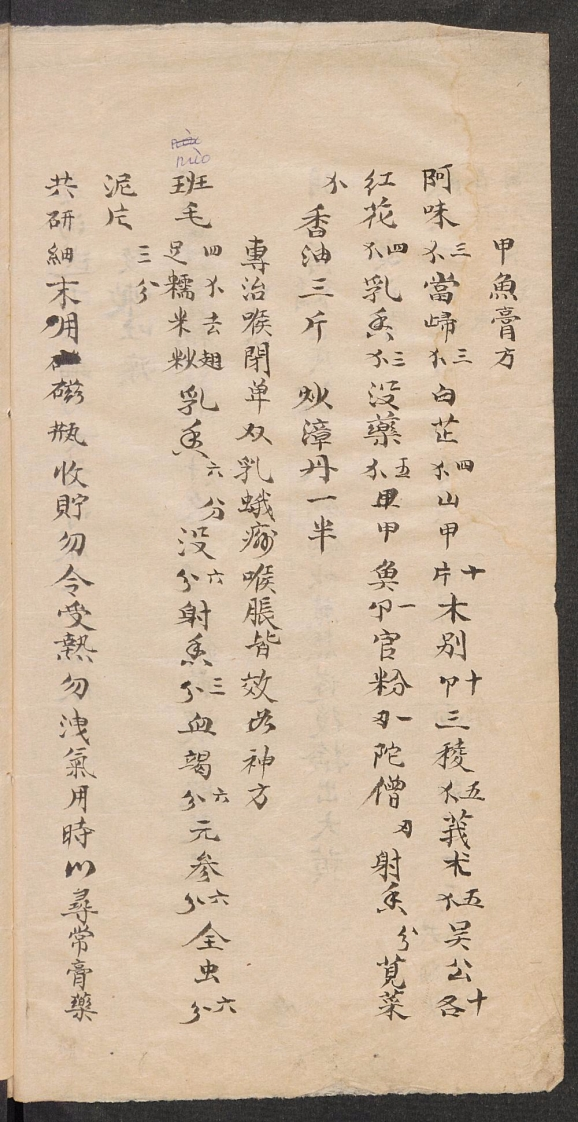 甲魚膏方
阿味三不當歸三不白芷四不山甲十片木別十个三稜五不莪术五不吴公十各
红花四不乳香三不没藥五不甲魚一个官粉一刄陀僧刄射香分莧菜
不 香油三斤 炒漳丹一半
專治喉閉单双乳蛾痛喉脹皆效此神方
班毛四不去翅足糯米炒乳香六分没六分射香三分血竭六分元参六分全虫六分
泥片三分
共研細末用磁瓶收貯勿令受熱勿洩氣用時以尋常膏藥